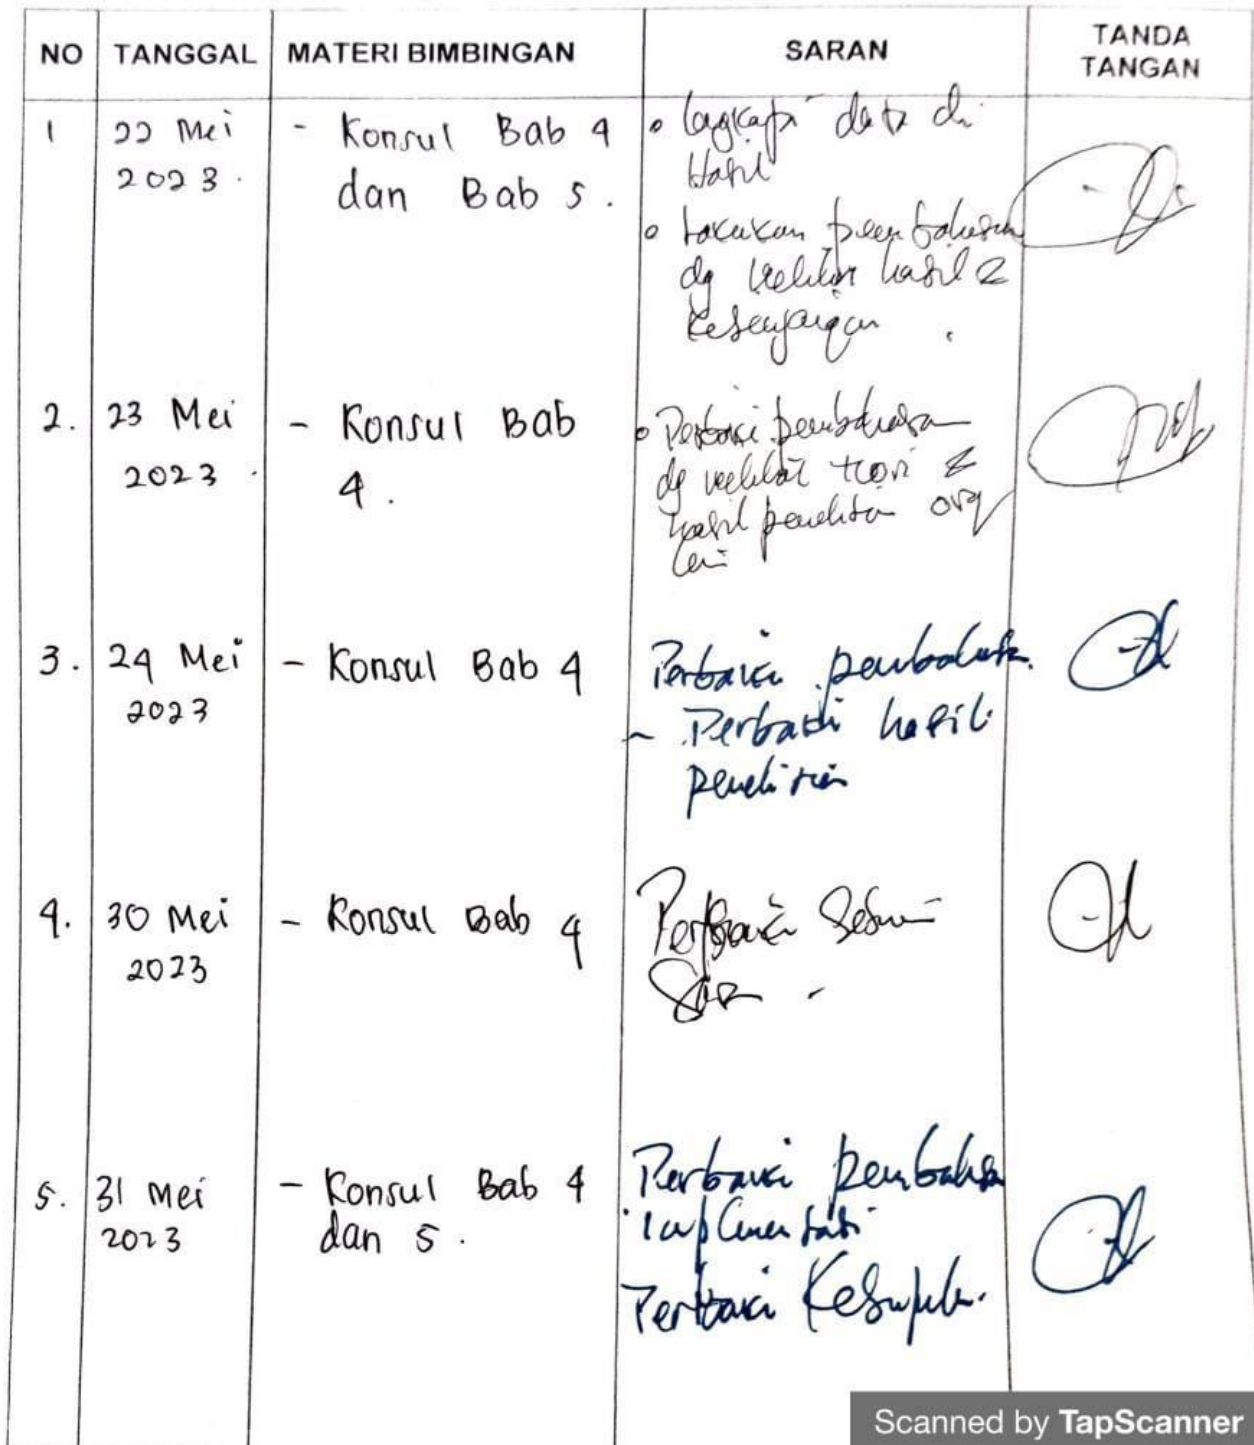 NO TANGGAL MATERI BIMBINGAN SARAN TANDA TANGAN
1 22 Mei 2023. - Konsul Bab 4 dan Bab 5.
data di
Hasil
o Lakukan pembahasan
dg melihat hasil &
kesenjangan
2. 23 Mei 2023. - Konsul Bab 4.
o Perbaiki pembahasan
dg melihat teori &
hasil penelitian org
lain
3. 24 Mei 2023 - Konsul Bab 4
Perbaiki pembahasan
- Perbaiki hasil
penelitian
4. 30 Mei 2023 - Konsul Bab 4
Perbaiki Sesuai
Saran
5. 31 Mei 2023 - Konsul Bab 4 dan 5.
Perbaiki pembahasan
implementasi
Perbaiki Kesimpulan.
Scanned by TapScanner